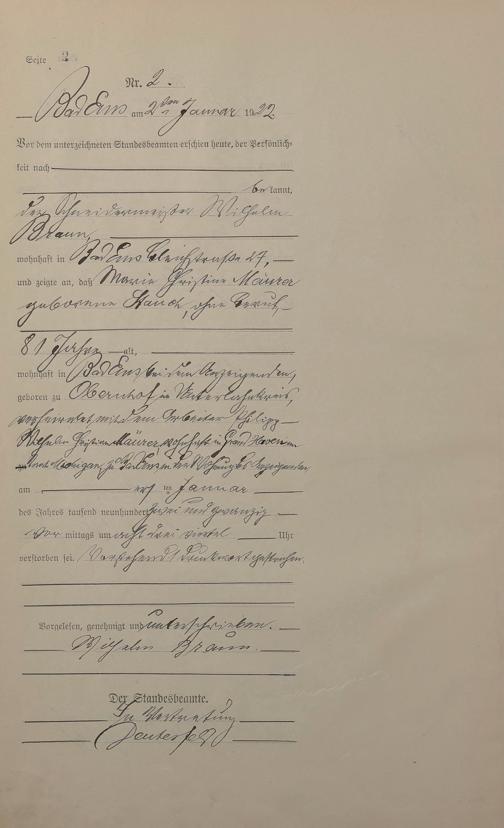 Seite 2
Nr. 2.
Bad Ems am 2ten Januar 1922
Vor dem unterzeichneten Standesbeamten erschien heute, der Persönlich-
keit nach
bekannt,
der Schneidermeister Wilhelm
Braun,
wohnhaft in Bad Ems Bleichstraße 27,
und zeigte an, daß Marie Christine Mäurer
geborene Stauch, ohne Beruf,
81 Jahre alt,
wohnhaft in Bad Ems bei dem Anzeigenden,
geboren zu Obernhof im Unterlahnkreis,
verheiratet mit dem Arbeiter Philipp
Wilhelm Christian Mäurer, wohnhaft in Grand Haven im
Staat Michigan, zu Bad Ems in der Wohnung des Anzeigenden
am ersten Januar
des Jahres tausend neunhundert zwei und zwanzig
vor mittags um acht drei viertel Uhr
verstorben sei. Vorstehend 1 Druckwort gestrichen.
Vorgelesen, genehmigt und unterschrieben.
Wilhelm Braun.
Der Standesbeamte.
In Vertretung